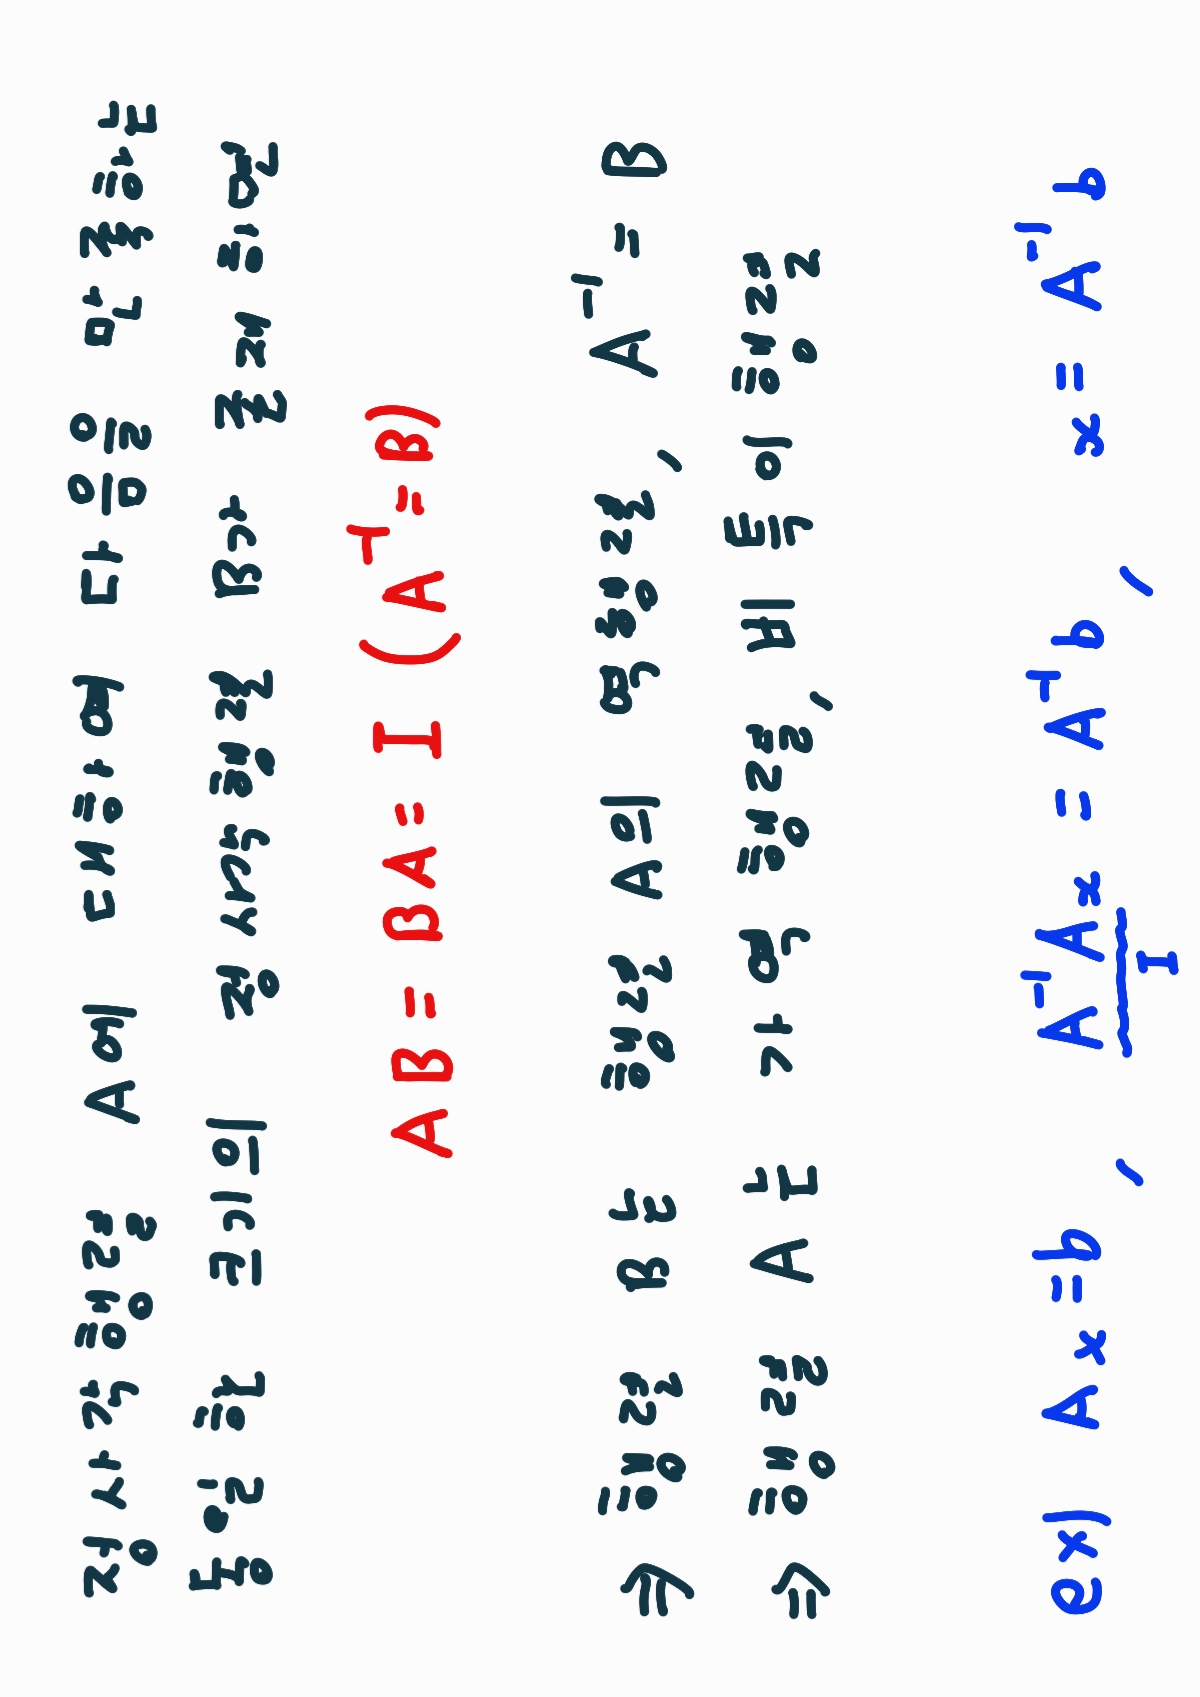 정사각행렬 A에 대하여 다음을 만족하는
유일한 크기의 정사각행렬 B가 존재하면
AB = BA = I (A⁻¹ = B)
⇒ 행렬 B는 행렬 A의 역행렬, A⁻¹ = B
⇒ 행렬 A는 가역행렬, 비특이행렬
ex) Ax = b, A⁻¹Ax = A⁻¹b, x = A⁻¹b
I